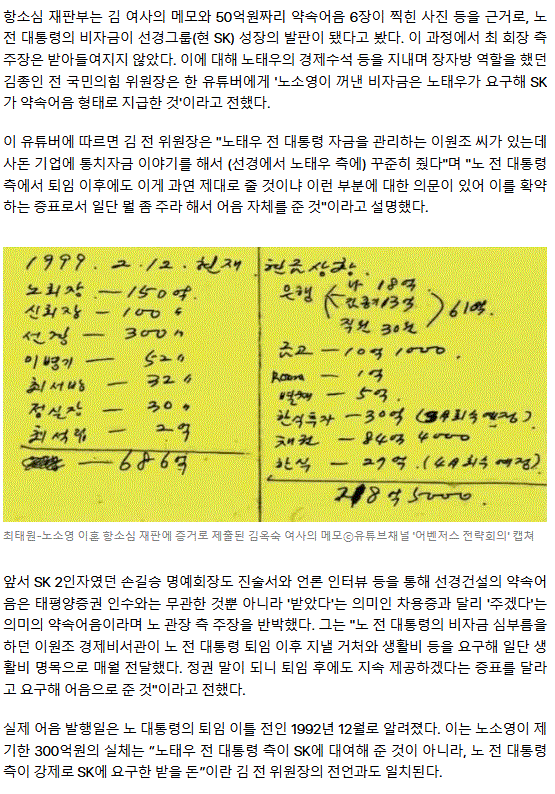 항소심 재판부는 김 여사의 메모와 50억원짜리 약속어음 6장이 찍힌 사진 등을 근거로, 노
전 대통령의 비자금이 선경그룹(현 SK) 성장의 발판이 됐다고 봤다. 이 과정에서 최 회장 측
주장은 받아들여지지 않았다. 이에 대해 노태우의 경제수석 등을 지내며 장자방 역할을 했던
김종인 전 국민의힘 위원장은 한 유튜버에게 '노소영이 꺼낸 비자금은 노태우가 요구해 SK
가 약속어음 형태로 지급한 것'이라고 전했다.
이 유튜버에 따르면 김 전 위원장은 "노태우 전 대통령 자금을 관리하는 이원조 씨가 있는데
사돈 기업에 통치자금 이야기를 해서 (선경에서 노태우 측에) 꾸준히 줬다"며 "노 전 대통령
측에서 퇴임 이후에도 이게 과연 제대로 줄 것이냐 이런 부분에 대한 의문이 있어 이를 확약
하는 증표로서 일단 뭘 좀 주라 해서 어음 자체를 준 것"이라고 설명했다.
1999. 2. 12. 현재
노회장 — 150억
신회장 — 100 〃
선경 — 300 〃
이병기 — 52 〃
최서방 — 32 〃
정실장 — 30 〃
최석립 — 2억
— 686억
현금상황
은행 나 18억
13억 61억
직원 30억
금고 — 10억 1000
Room — 1억
별채 — 5억
한석투자 — 30억 (3A회수예정)
채권 — 84억 4000
한식 — 27억 (4A회수예정)
218억 5000
최태원-노소영 이혼 항소심 재판에 증거로 제출된 김옥숙 여사의 메모ⓒ유튜브채널 '어벤저스 전략회의' 캡쳐
앞서 SK 2인자였던 손길승 명예회장도 진술서와 언론 인터뷰 등을 통해 선경건설의 약속어
음은 태평양증권 인수와는 무관한 것뿐 아니라 '받았다'는 의미인 차용증과 달리 '주겠다'는
의미의 약속어음이라며 노 관장 측 주장을 반박했다. 그는 "노 전 대통령의 비자금 심부름을
하던 이원조 경제비서관이 노 대통령 퇴임 이후 지낼 거처와 생활비 등을 요구해 일단 생
활비 명목으로 매월 전달했다. 정권 말이 되니 퇴임 후에도 지속 제공하겠다는 증표를 달라
고 요구해 어음으로 준 것"이라고 전했다.
실제 어음 발행일은 노 대통령의 퇴임 이틀 전인 1992년 12월로 알려졌다. 이는 노소영이 제
기한 300억원의 실체는 "노태우 전 대통령 측이 SK에 대여해 준 것이 아니라, 노 전 대통령
측이 강제로 SK에 요구한 받을 돈"이란 김 전 위원장의 전언과도 일치된다.